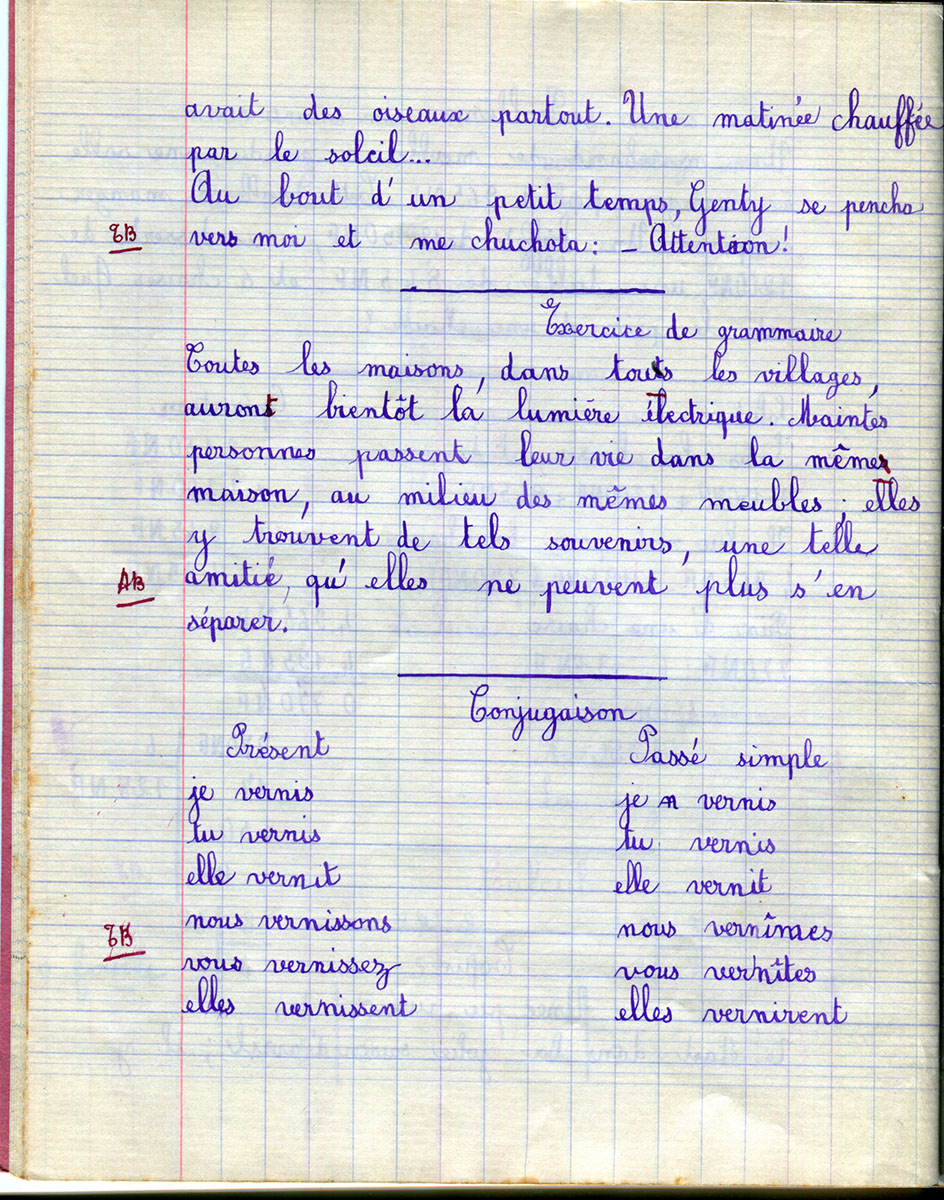 avait des oiseaux partout. Une matinée chauffée
par le soleil...
Au bout d'un petit temps, Genty se pencha
TB vers moi et me chuchota: – Attention!
Exercice de grammaire
Toutes les maisons, dans tous les villages,
auront bientôt la lumiére électrique. Maintes
personnes passent leur vie dans la même
maison, au milieu des mêmes meubles; elles
y trouvent de tels souvenirs, une telle
AB amitié, qu'elles ne peuvent plus s'en
séparer.
Conjugaison
Présent Passé simple
je vernis je vernis
tu vernis tu vernis
elle vernit elle vernit
nous vernissons nous vernîmes
TB vous vernissez vous vernîtes
elles vernissent elles vernirent